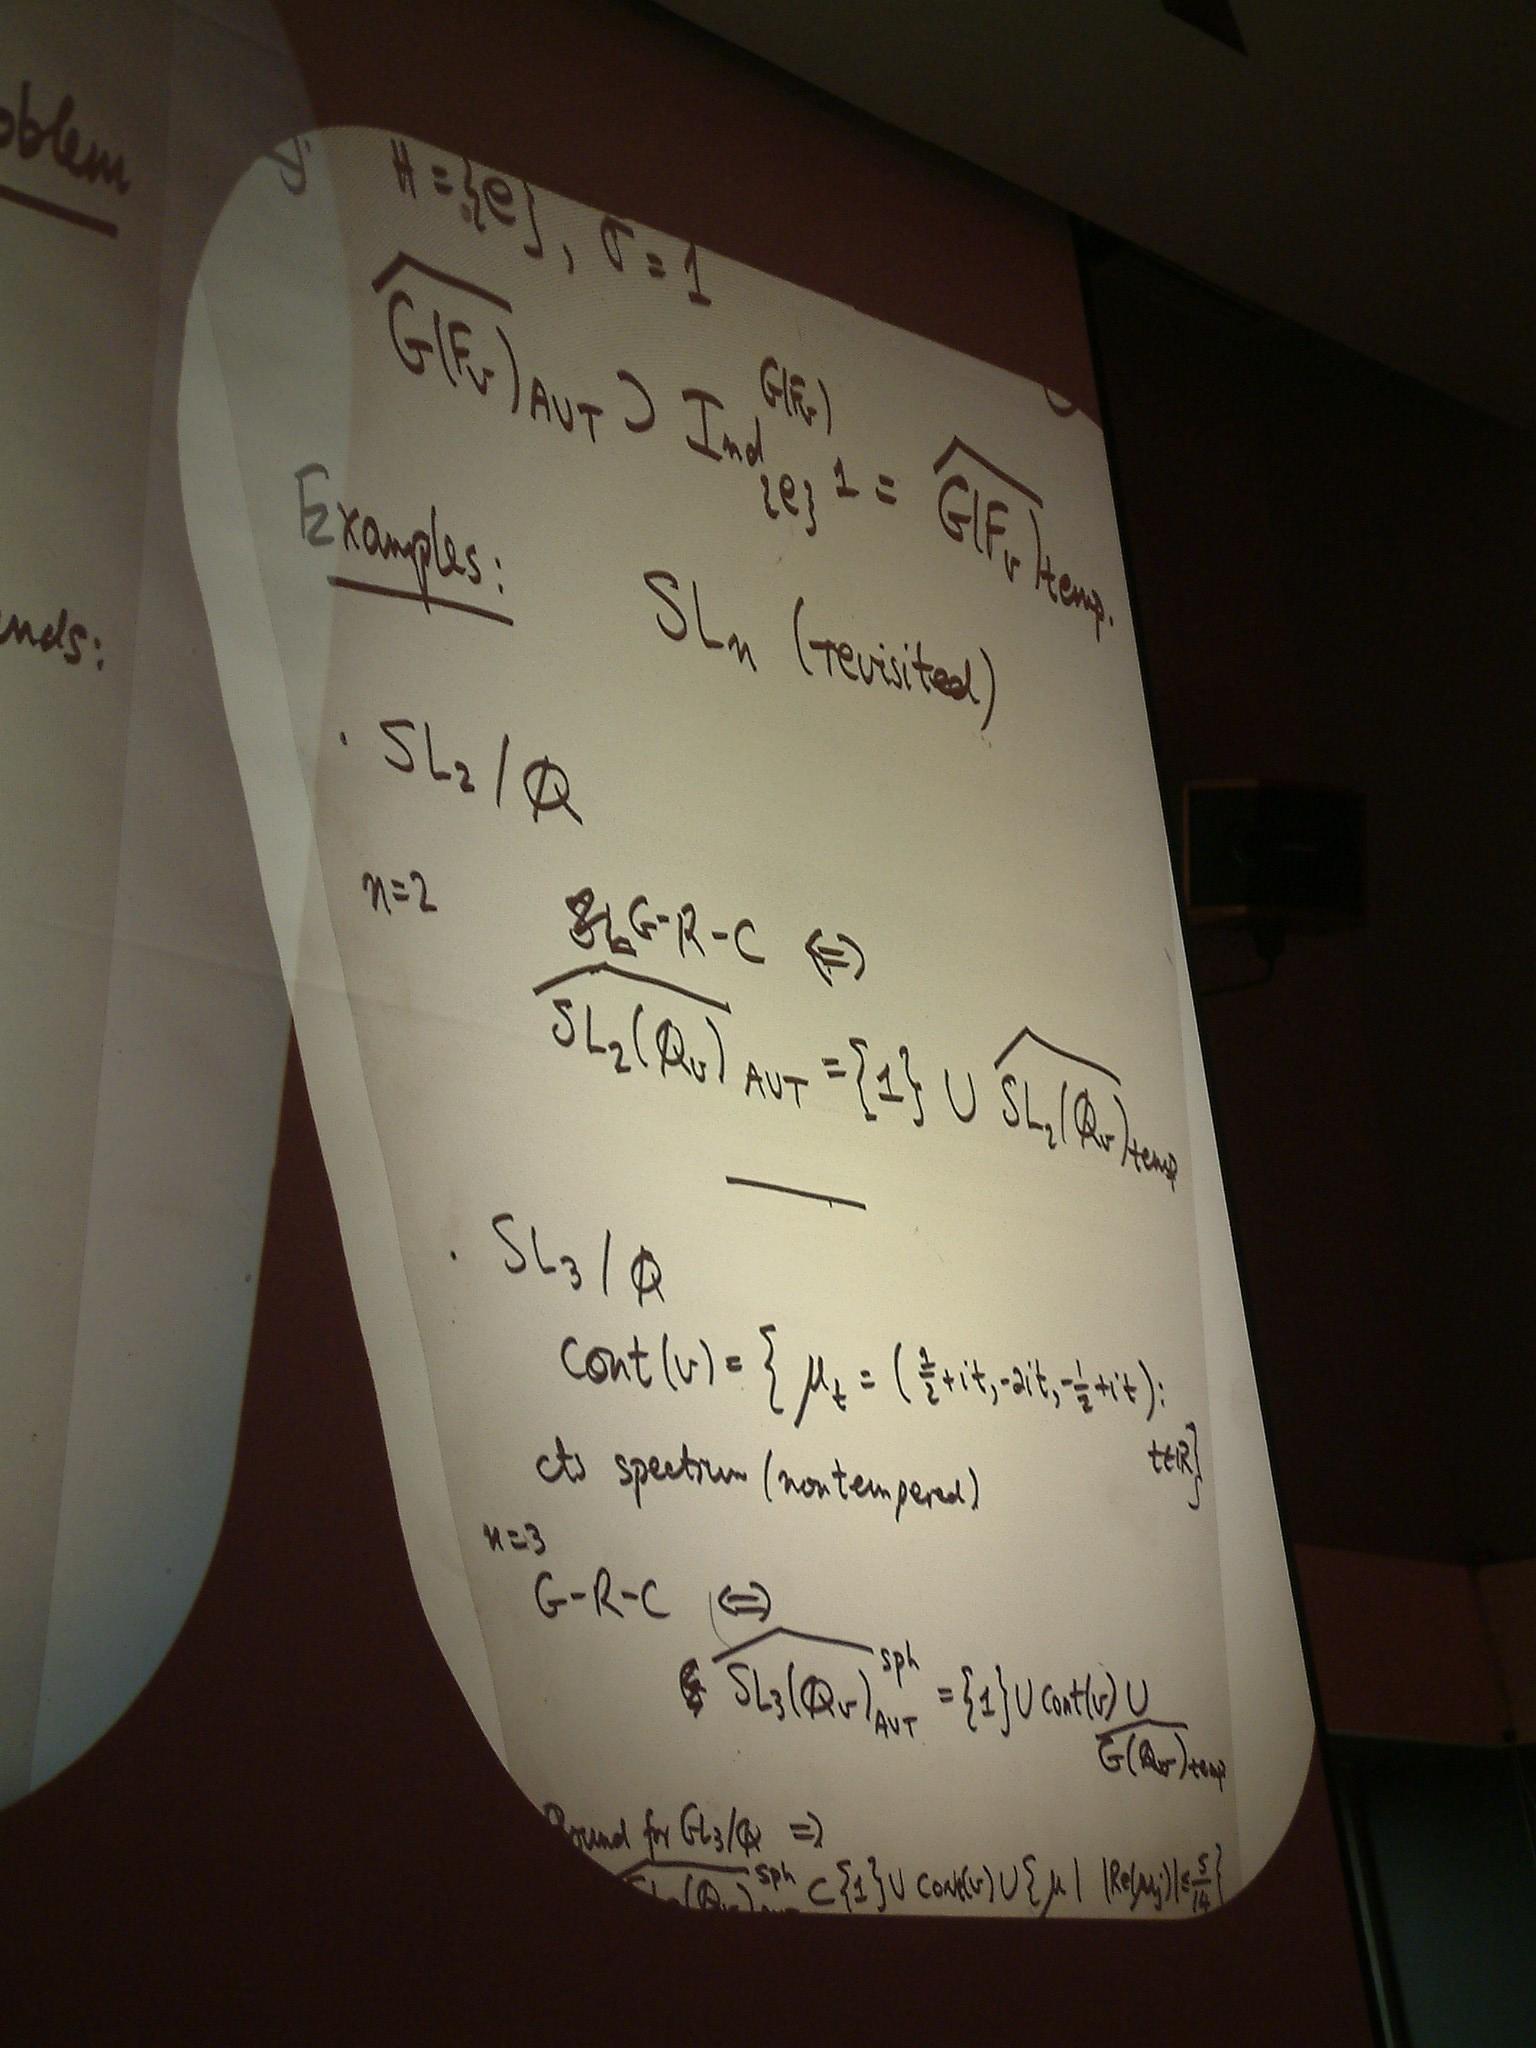 oblem
ends:
H = {e}, σ = 1
G(F_v)^_AUT ⊃ Ind_{e}^G(F_v) 1 = G(F_v)^_temp.
Examples: SL_n (revisited)
· SL_2 / Q
n=2 G-R-C ⇔
SL_2(Q_v)^_AUT = {1} ∪ SL_2(Q_v)^_temp
· SL_3 / Q
Cont(v) = { μ_t = (1/2+it, -2it, -1/2+it):
t∈R}
cts spectrum (nontempered)
n=3
G-R-C ⇔
SL_3(Q_v)^_AUT^sph = {1} ∪ cont(v) ∪
G(Q_v)^_temp
Bound for GL_3/Q ⇒
(Q_v)^sph ⊂ {1} ∪ cont(v) ∪ { μ | |Re(μ_j)| ≤ 5/14 }